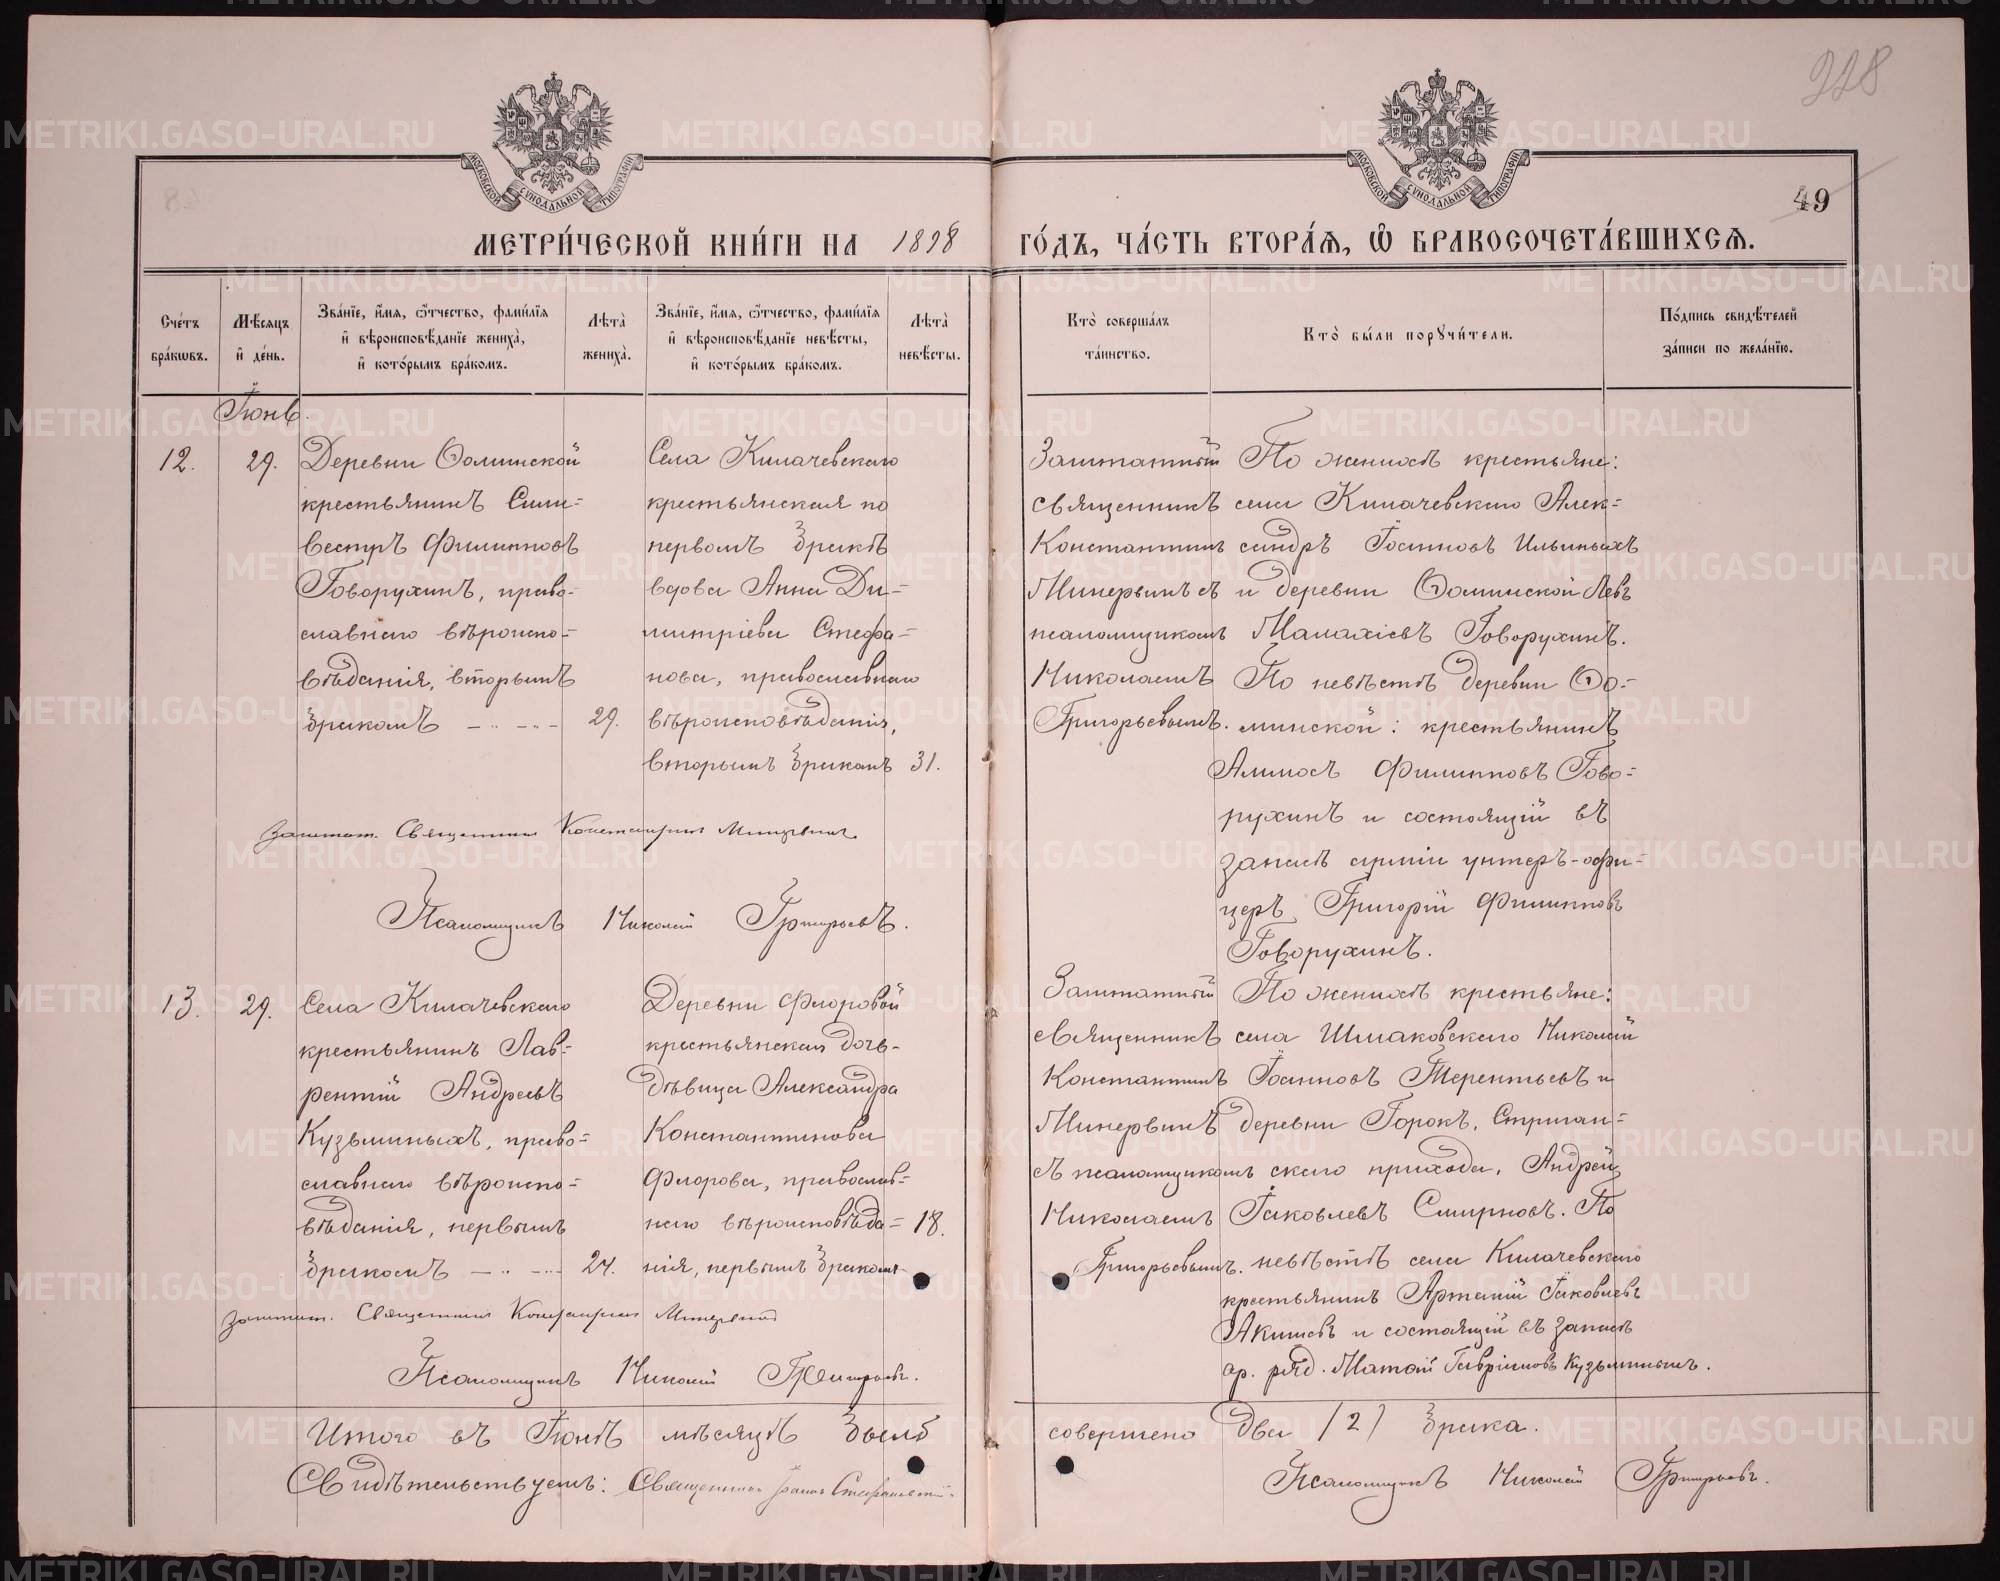 228
49
МОСКОВСКОЙ СѴНОДАЛЬНОЙ ТИПОГРАФІИ
МОСКОВСКОЙ СѴНОДАЛЬНОЙ ТИПОГРАФІИ
МЕТРИ́ЧЕСКОЙ КНИ́ГИ НА 1898 ГО́ДЪ, ЧА́СТЬ ВТОРА́Я, Ѽ БРАКОСОЧЕТА́ВШИХСЯ.
Сче́тъ
бра́кωвъ.
Мѣ́сяцъ
и҆ де́нь.
Зва́нїе, и҆́мя, ѻ҆́тчество, фами́лїя
и҆ вѣроисповѣ́данїе жениха̀,
и҆ кото́рымъ бра́комъ.
Лѣта̀
жениха̀.
Зва́нїе, и҆́мя, ѻ҆́тчество, фами́лїя
и҆ вѣроисповѣ́данїе невѣ́сты,
и҆ кото́рымъ бра́комъ.
Лѣта̀
невѣ́сты.
Кто̀ соверша́лъ
та́инство.
Кто̀ бы́ли порꙋчи́тели.
По́дпись свидѣ́телей
за́писи по жела́нїю.
Іюнь.
12.
29.
Деревни Ѳоминской
крестьянинъ Сили=
вестръ Филипповъ
Говорухинъ, право=
славнаго вѣроиспо=
вѣданія, вторымъ
бракомъ
29.
Села Килачевскаго
крестьянская по
первомъ бракѣ
вдова Анна Ди=
митріева Стефа=
нова, православнаго
вѣроисповѣданія,
вторымъ бракомъ
31.
Заштатный
священникъ
Константинъ
Минервинъ съ
псаломщикомъ
Николаемъ
Григорьевымъ.
По женихѣ крестьяне:
села Килачевскаго Алек=
сандръ Іоанновъ Ильиныхъ
и деревни Ѳоминской Левъ
Малахіевъ Говорухинъ.
По невѣстѣ деревни Ѳо=
минской: крестьянинъ
Филипповъ Гово=
рухинъ и состоящій въ
запасѣ арміи унтеръ-офи=
церъ Григорій Филипповъ
Говорухинъ.
Заштат. Священникъ Константинъ Минервинъ
Псаломщикъ Николай Григорьевъ.
13.
29.
Села Килачевскаго
крестьянинъ Лав=
рентій Андреевъ
Кузьминыхъ, право=
славнаго вѣроиспо=
вѣданія, первымъ
бракомъ
24.
Деревни Фроловой
крестьянская дочь-
дѣвица Александра
Константинова
Флорова, православ=
наго вѣроисповѣда=
нія, первымъ бракомъ
18.
Заштатный
священникъ
Константинъ
Минервинъ
съ псаломщикомъ
Николаемъ
Григорьевымъ.
По женихѣ крестьяне:
села Шмаковскаго Николай
Іоанновъ Терентьевъ и
деревни Горокъ, Стриган=
скаго прихода, Андрей
Іаковлевъ Смирновъ. По
невѣстѣ села Килачевскаго
крестьянинъ Артемій Іаковлевъ
Акишевъ и состоящій въ запасѣ
ар. ряд. Матѳій Гавріиловъ Кузьминыхъ.
Заштат. Священникъ Константинъ Минервинъ
Псаломщикъ Николай Григорьевъ.
Итого въ Іюнѣ мѣсяцѣ было совершено два /2/ брака.
Свидѣтельствуемъ: Священникъ Іоаннъ
Псаломщикъ Николай Григорьевъ.
METRIKI.GASO-URAL.RU